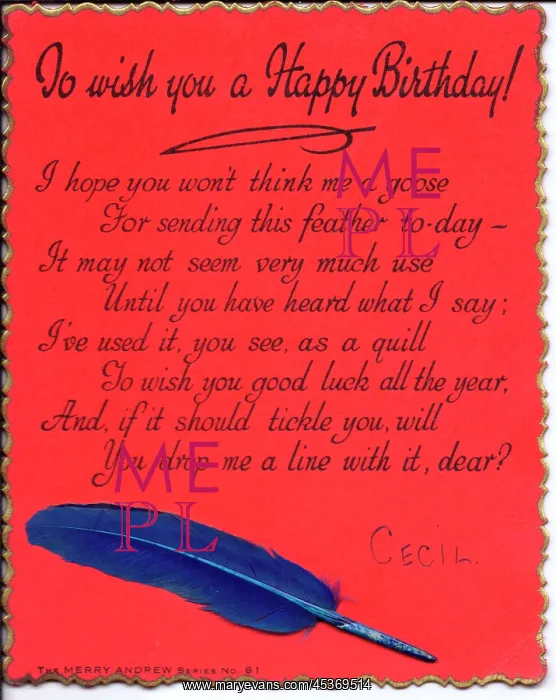 To wish you a Happy Birthday!
I hope you won't think me a goose
For sending this feather to-day –
It may not seem very much use
Until you have heard what I say;
I've used it, you see, as a quill
To wish you good luck all the year,
And, if it should tickle you, will
You drop me a line with it, dear?
CECIL.
THE MERRY ANDREW SERIES NO. 61
ME
PL
ME
PL
www.maryevans.com/45369514